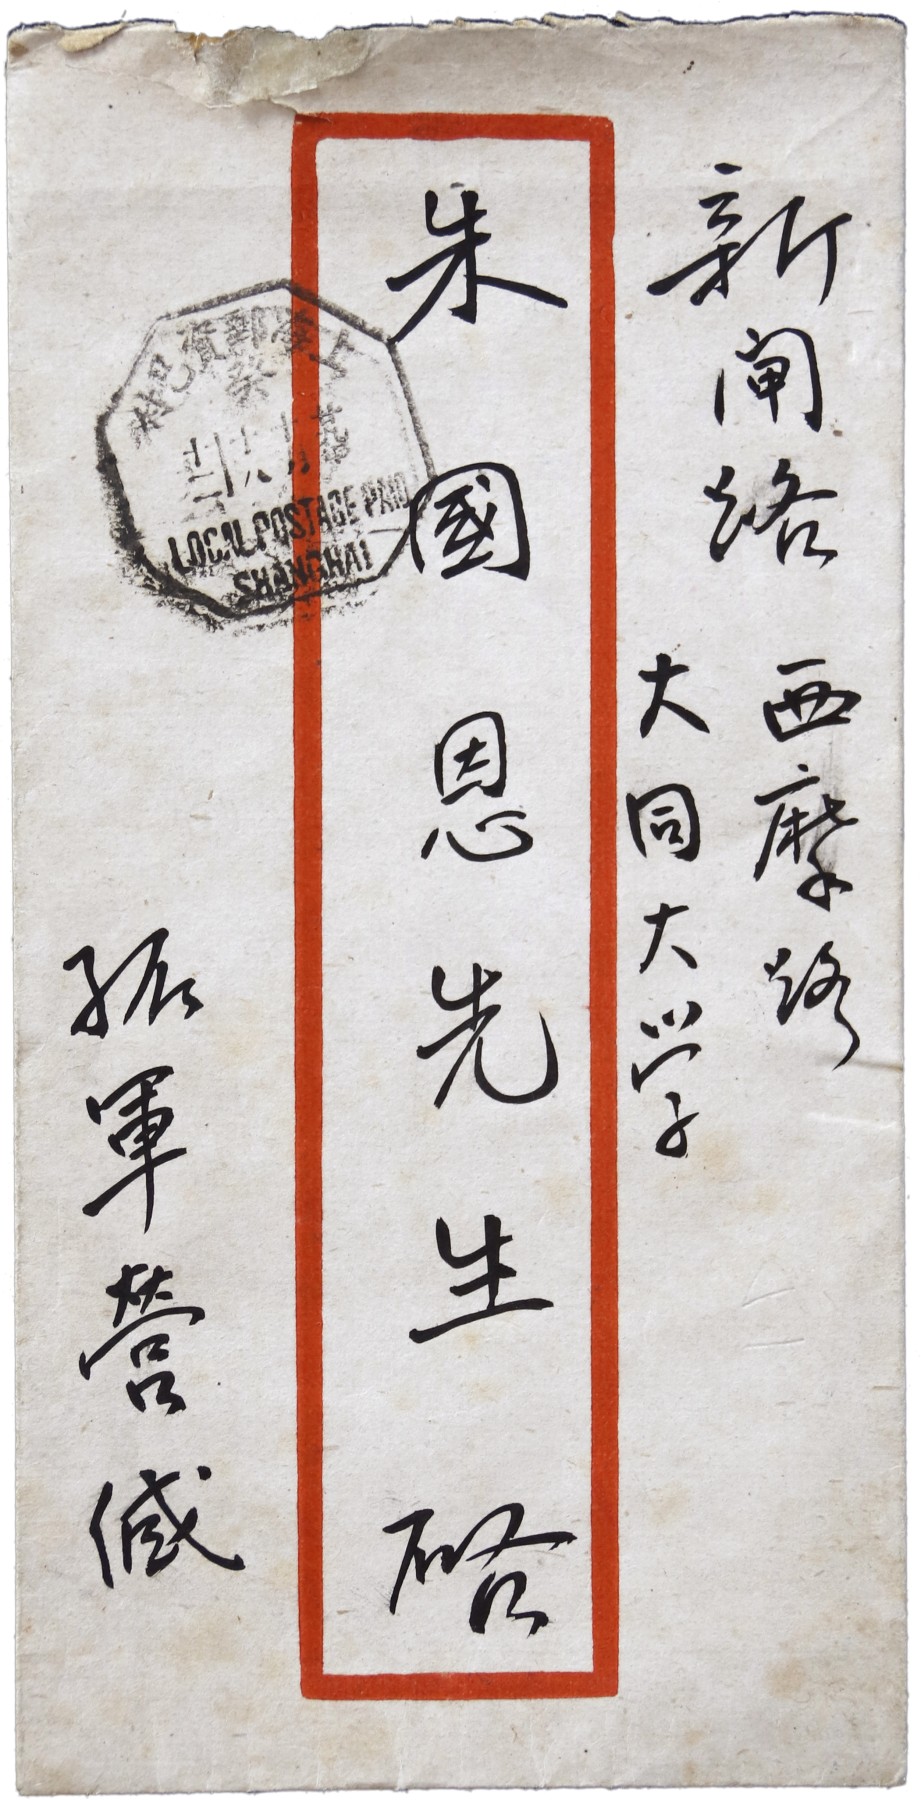 新閘路
西摩路
大同大学
朱國恩先生 啓
孤軍營緘
LOCAL POSTAGE PAID
SHANGHAI